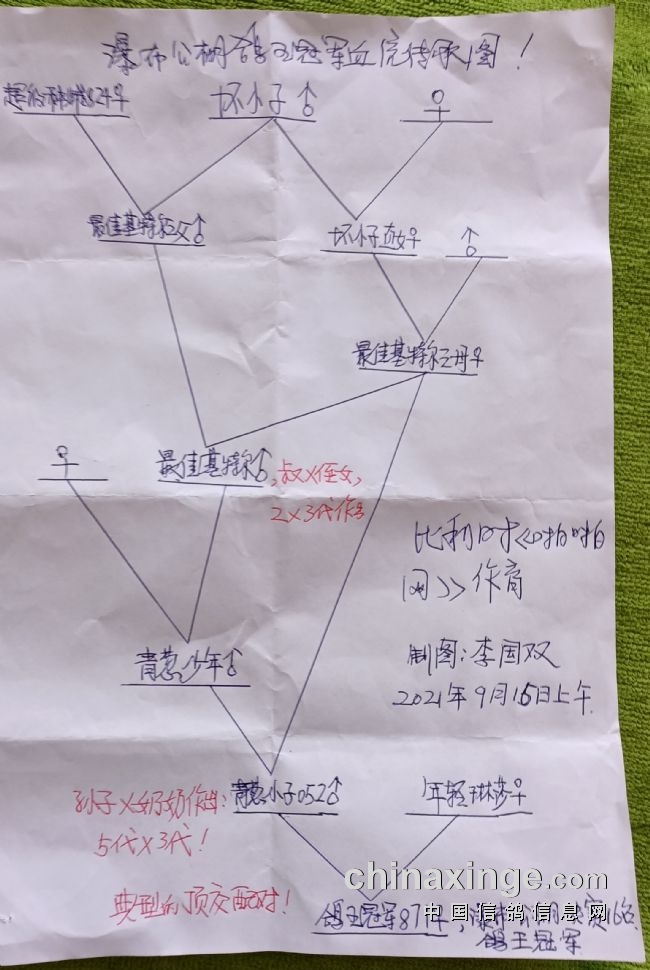 瀑布公棚鸽王冠军血统传承图！
坏小子♂
♀
最佳基特尔之父♂
坏小子直女♀
♂
最佳基特尔之母♀
♀
最佳基特尔♂
，叔X侄女，
2X3代作出
比利时《啪啪
网》作育
青葱少年♂
制图：李国双
2021年9月15日上午
青葱小子052♂
年轻琳莎♀
孙子X奶奶作出：
5代X3代！
典型的顶交配对！
chinaxinge.com
中国信鸽信息网
鸽王冠军87
鸽王冠军